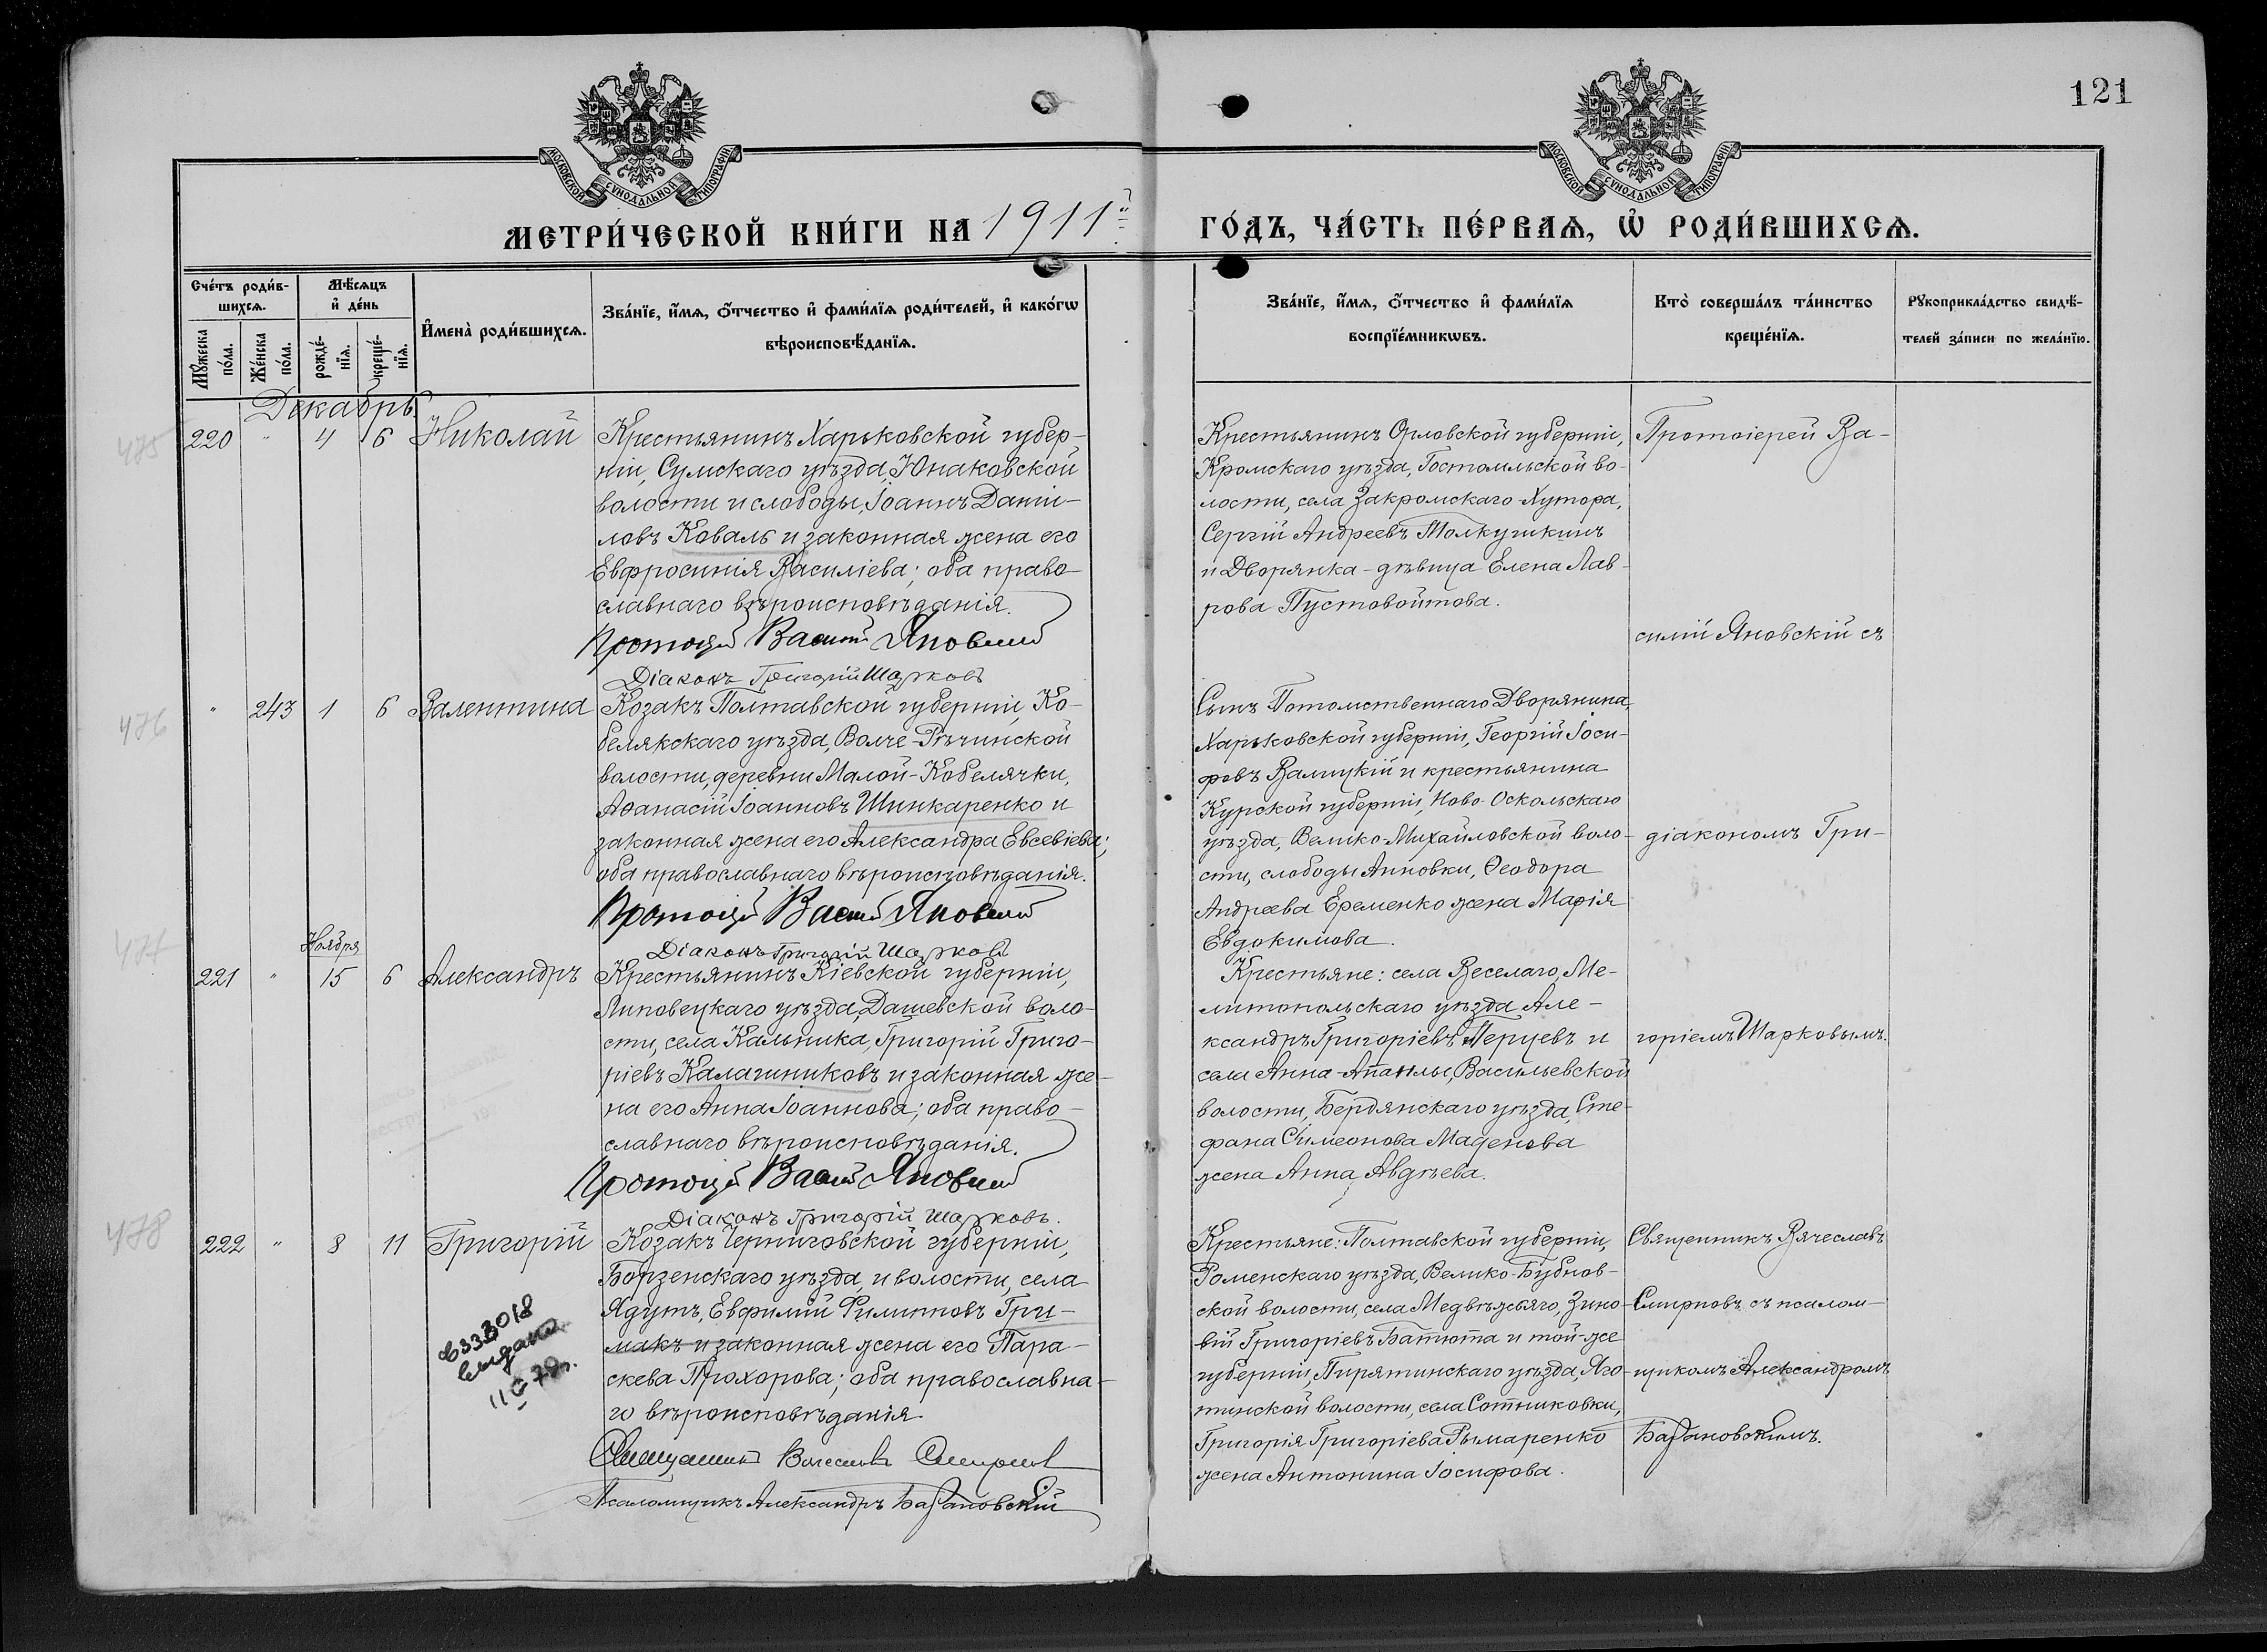 121
МОСКОВСКОЙ СѴНОДАЛЬНОЙ ТИПОГРАФІИ
МОСКОВСКОЙ СѴНОДАЛЬНОЙ ТИПОГРАФІИ
МЕТРИ́ЧЕСКОЙ КНИ́ГИ НА 1911й ГО́ДЪ, ЧА́СТЬ ПЕ́РВАѦ, Ѡ҆ РОДИ́ВШИХСѦ.
Сче́тъ роди́в-
шихсѧ.
Мꙋ́жеска по́ла.
Же́нска по́ла.
Мѣ́сѧцъ
и҆ де́нь
рожде́-нїѧ.
креще́-нїѧ.
И҆мена̀ роди́вшихсѧ.
Зва́нїе, и҆́мѧ, ѻ҆́тчество и҆ фами́лїѧ роди́телей, и҆ како́гѡ
вѣроисповѣ́данїѧ.
Зва́нїе, и҆́мѧ, ѻ҆́тчество и҆ фами́лїѧ
воспрїе́мникѡвъ.
Кто̀ соверша́лъ та́инство
креще́нїѧ.
Рꙋкоприкла́дство свидѣ́-
телей за́писи по жела́нїю.
Декабрь.
475
220 " 4 6 Николай
Крестьянинъ Харьковской губер-
ніи, Сумскаго уѣзда, Юнаковской
волости и слободы, Іоаннъ Даніи-
ловъ Коваль и законная жена его
Евфросинія Василіева; оба право-
славнаго вѣроисповѣданія.
Протоіерей Василій Яновскій
Діаконъ Григорій Шарковъ
Крестьянинъ Орловской губерніи,
Кромскаго уѣзда, Гостомльской во-
лости, села Закромскаго-Хутора,
Сергій Андреевъ Молкушкинъ
и Дворянка-дѣвица Елена Лав-
рова Пустовойтова.
Протоіерей Ва-
силій Яновскій съ
476
" 243 1 6 Валентина
Козакъ Полтавской губерніи, Ко-
белякскаго уѣзда, Волче-Рѣчинской
волости, деревни Малой-Кобелячки,
Аѳанасій Іоанновъ Шинкаренко и
законная жена его Александра Евсевіева;
оба православнаго вѣроисповѣданія.
Протоіерей Василій Яновскій
Діаконъ Григорій Шарковъ
Сынъ Потомственнаго Дворянина,
Харьковской губерніи, Георгій Іоси-
фовъ Валицкій и крестьянина
Курской губерніи, Ново-Оскольскаго
уѣзда, Велико-Михайловской воло-
сти, слободы Анновки, Ѳеодора
Андреева Еременко жена Марія
Евдокимова.
діакономъ Гри-
477
Ноября
221 " 15 6 Александръ
Крестьянинъ Кіевской губерніи,
Липовецкаго уѣзда, Дашевской воло-
сти, села Кальника, Григорій Григо-
ріевъ Калашниковъ и законная же-
на его Анна Іоаннова; оба право-
славнаго вѣроисповѣданія.
Протоіерей Василій Яновскій
Діаконъ Григорій Шарковъ.
Крестьяне: села Веселаго, Ме-
литопольскаго уѣзда Але-
ксандръ Григоріевъ Перцевъ и
села Анна-Апаклы, Васильевской
волости, Бердянскаго уѣзда, Сте-
фана Симеонова Маденова
жена Анна Авдѣева.
горіемъ Шарковымъ.
478
222 " 8 11 Григорій
6333018
выдано
Козакъ Черниговской губерніи,
Борзенскаго уѣзда, и волости, села
Ядутъ, Евфимій Филипповъ Гри-
макъ и законная жена его Пара-
скева Прохорова; оба православна-
го вѣроисповѣданія
Священникъ Вячеславъ Смирновъ
Псаломщикъ Александръ Барановскій
Крестьяне: Полтавской губерніи,
Роменскаго уѣзда, Велико-Бубнов-
ской волости, села Медвѣжьяго, Зино-
вій Григоріевъ Батюта и той-же
губерніи, Пирятинскаго уѣзда, Яго-
тинской волости, села Сотниковки,
Григорія Григоріева Рымаренко
жена Антонина Іосифова.
Священникъ Вячеславъ
Смирновъ съ псалом-
щикомъ Александромъ
Барановскимъ.